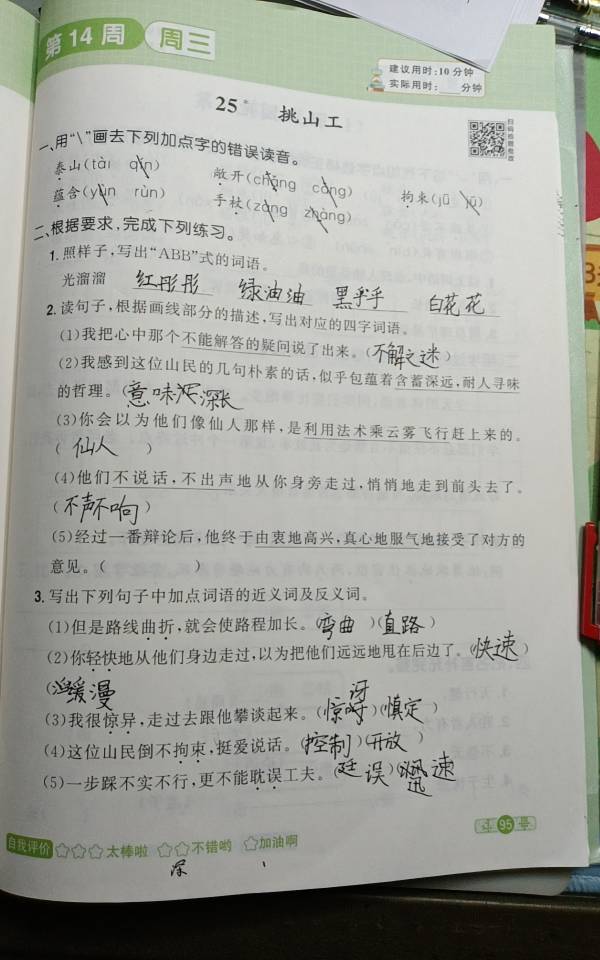 第14周 周三
建议用时:10分钟
实际用时: 分钟
25* 挑山工
扫码检查批改
一、用“\”画去下列加点字的错误读音。
泰山(tài qín) 敞开(chǎng cǎng) 拘束(jū jù)
蕴含(yùn rùn) 手杖(zàng zhàng)
二、根据要求,完成下列练习。
1. 照样子,写出“ABB”式的词语。
光溜溜 红彤彤 绿油油 黑乎乎 白花花
2. 读句子,根据画线部分的描述,写出对应的四字词语。
(1)我把心中那个不能解答的疑问说了出来。(不解之迷)
(2)我感到这位山民的几句朴素的话,似乎包蕴着含蓄深远,耐人寻味
的哲理。(意味深长
(3)你会以为他们像仙人那样,是利用法术乘云雾飞行赶上来的。
( 仙人 )
(4)他们不说话,不出声地从你身旁走过,悄悄地走到前头去了。
(不声不响)
(5)经过一番辩论后,他终于由衷地高兴,真心地服气地接受了对方的
意见。( )
3. 写出下列句子中加点词语的近义词及反义词。
(1)但是路线曲折,就会使路程加长。(弯曲 )(直路 )
(2)你轻快地从他们身边走过,以为把他们远远地甩在后边了。(快速)
(缓漫
(3)我很惊异,走过去跟他攀谈起来。(惊讶)(慎定 )
(4)这位山民倒不拘束,挺爱说话。(控制)(开放 )
(5)一步踩不实不行,更不能耽误工夫。(延误)(迅速
自我评价 ☆☆☆太棒啦 ☆☆不错哟 ☆加油啊
95